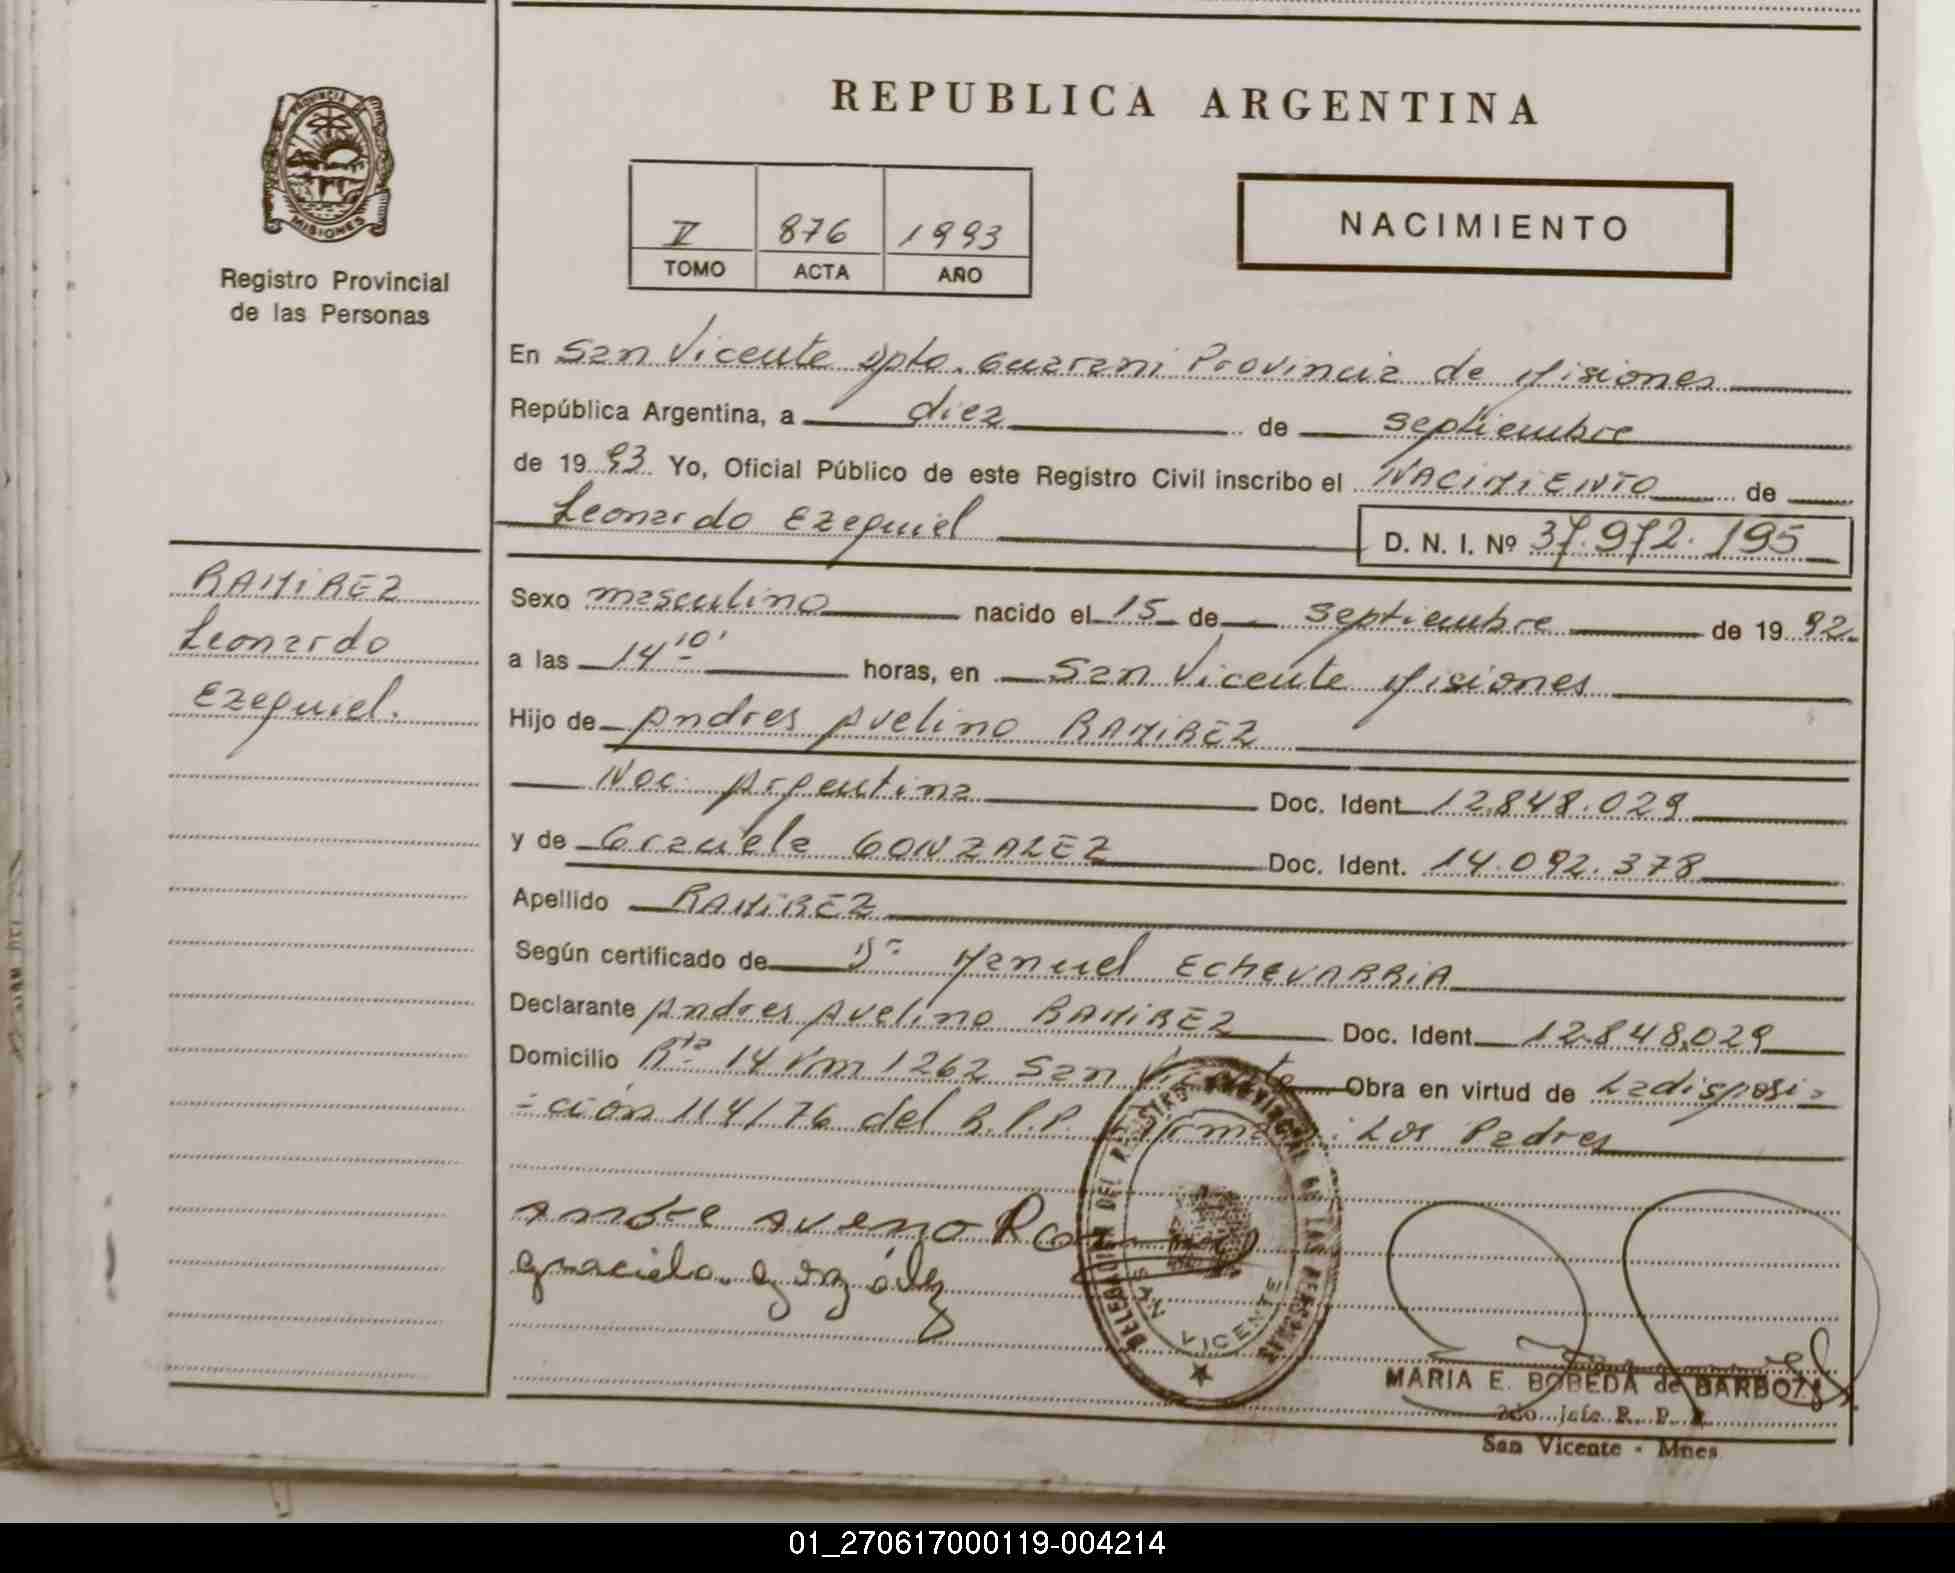 REPUBLICA ARGENTINA
PROVINCIA
MISIONES
Registro Provincial
de las Personas
V 876 1993
TOMO ACTA AÑO
NACIMIENTO
En San Vicente Dpto. Guarani Provincia de Misiones
República Argentina, a diez de septiembre
de 1993 Yo, Oficial Público de este Registro Civil inscribo el NACIMIENTO de
Leonardo Ezequiel D. N. I. Nº 37.972.195
RAMIREZ
Leonardo
Ezequiel.
Sexo masculino nacido el 15 de septiembre de 1992.
a las 14 10' horas, en San Vicente Misiones
Hijo de Andres Avelino RAMIREZ
Nac. Argentina Doc. Ident 12.848.029
y de Graciela GONZALEZ Doc. Ident. 14.092.378
Apellido RAMIREZ
Según certificado de Dr Manuel ECHEVARRIA
Declarante Andres Avelino RAMIREZ Doc. Ident 12.848.029
Domicilio Rta 14 Km 1262 San Vicente Obra en virtud de La disposi-
-ción 114/76 del R.P.P. Firman: Los Padres
DELEGACION DEL REGISTRO PROVINCIAL DE LAS PERSONAS
SAN VICENTE
MARIA E. BOBEDA de BARBOZA
2do. Jefe R. P.
San Vicente - Mnes
01_270617000119-004214